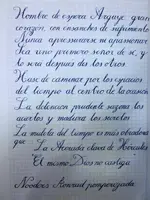 Hombre de espera. Arguye gran
corazón, con ensanches de sufrimiento
Nunca apresurarse ni apasionarse
Sea uno primero señor de sí, y
lo será después de los otros
Hase de caminar por los espacios
del tiempo al centro de la ocasión
La detención prudente sazona los
aciertos y madura los secretos
La muleta del tiempo es más obradora
que La Acerada clava de Hércules
"El mismo Dios no castiga"
Noodlers